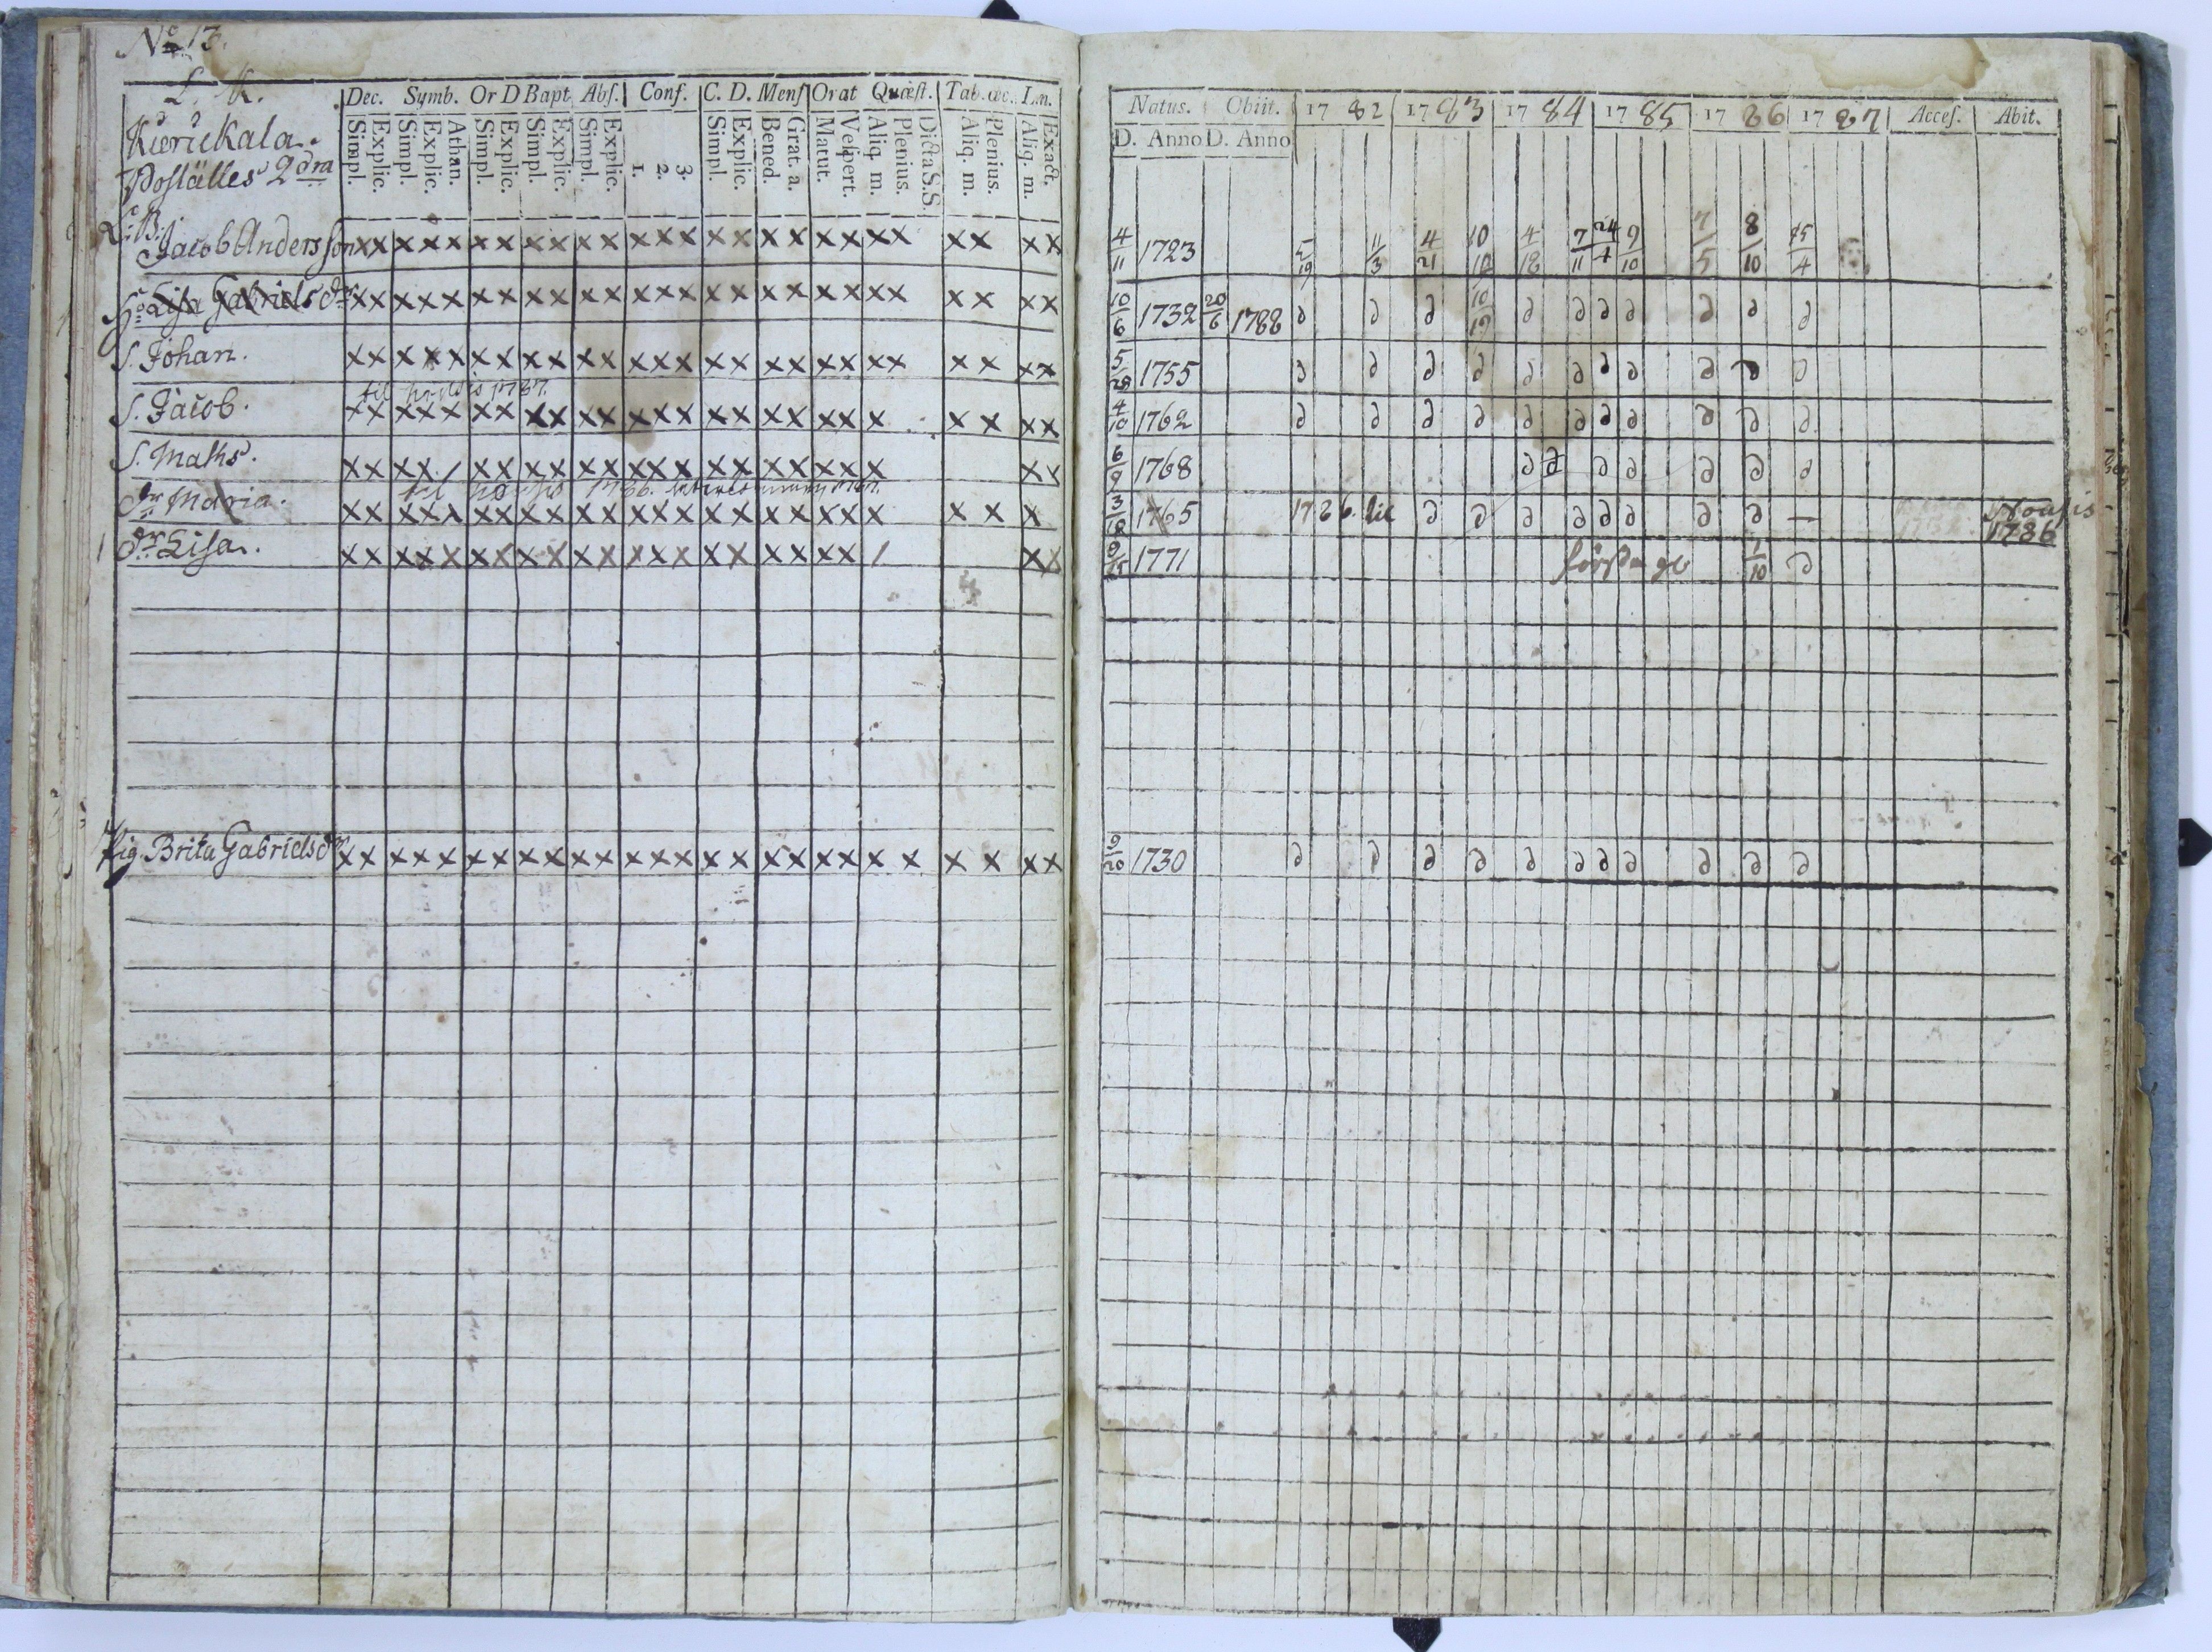 No 13.
L. K.
Dec. Symb. Or D Bapt Abſ. Conf. C. D. Menſ Orat Quæſt. Tab. œc. I.m.
Simpl. Explic. Simpl. Explic. Athan. Simpl. Explic. Simpl. Explic. Simpl. Explic. 1. 2. 3. Simpl. Explic. Bened. Grat. a. Matut. Veſpert. Aliq. m. Plenius. Dicta S.S. Aliq. m. Plenius. Aliq. m. Exact.
Natus. Obiit. 17 82 17 83 17 84 17 85 17 86 17 87 Acceſ. Abit.
D. Anno D. Anno
Kierickala.
Boställes 2dra
B. Jacob Andersson xx xxx xx xx xx xxx xx xx xx xx xx xx 4/11 1723 5/19 11/3 4/21 10/10 4/18 7/11 24/4 9/10 7/5 8/10 15/4
H:o Lisa Gabriels dr xx xxx xx xx xx xxx xx xx xx xx xx xx 10/6 1732 20/6 1788 ∂ ∂ ∂ 10/19 ∂ ∂ ∂ ∂ ∂ ∂ ∂
S. Johan. xx xxx xx xx xx xxx xx xx xx xx xx xx 5/29 1755 ∂ ∂ ∂ ∂ ∂ ∂ ∂ ∂ ∂ ∂ ∂
1787.
S. Jacob. xx xxx xx xx xx xxx xx xx xx x xx xx 4/10 1762 ∂ ∂ ∂ ∂ ∂ ∂ ∂ ∂ ∂ ∂ ∂
S. Mats. xx xx / xx xx xx xxx xx xx xx x xx 6/9 1768 ∂ ∂ ∂ ∂ ∂ ∂ ∂
til 1786.
dr Maria. xx xxx xx xx xx xxx xx xx xx x xx x 3/18 1765 1786. til ∂ ∂ ∂ ∂ ∂ ∂ ∂ ∂ — 1786
1 dr Lisa. xx xxx xx xx xx xxx xx xx xx / xx 9/15 1771 1/10 ∂
Brita Gabriels dr xx xxx xx xx xx xxx xx xx xx xx xx xx 9/20 1730 ∂ ∂ ∂ ∂ ∂ ∂ ∂ ∂ ∂ ∂ ∂